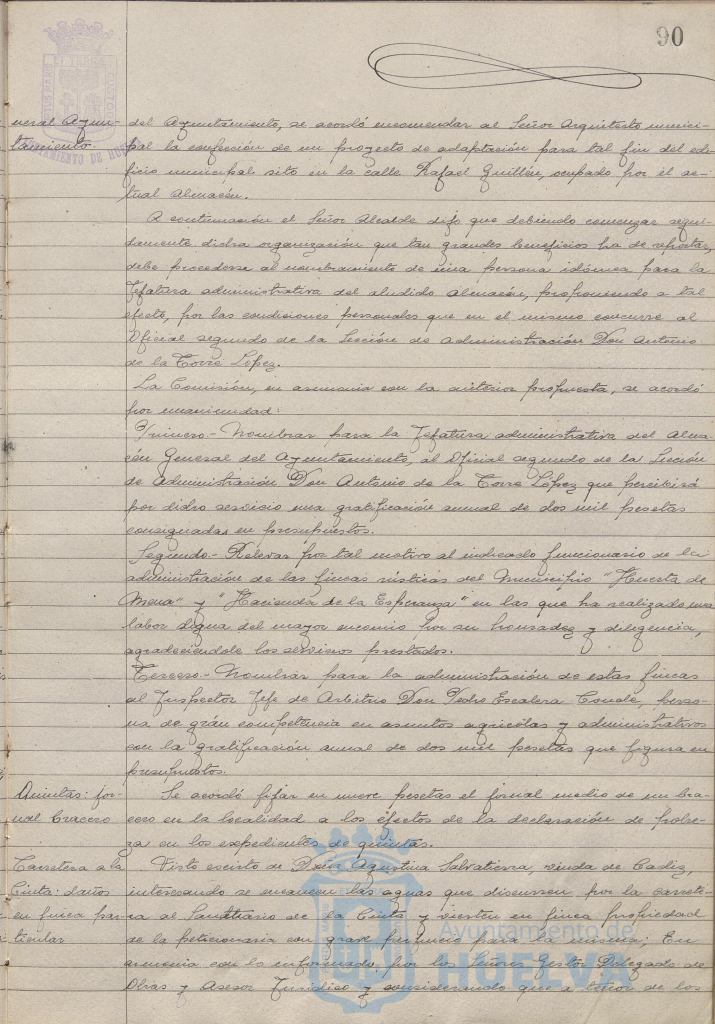 90
neral Ayun-
tamiento
del Ayuntamiento, se acordó encomendar al Señor Arquitecto munici-
pal la confección de un proyecto de adaptación para tal fin del edi-
ficio municipal sito en la calle Rafael Guillén, ocupado por el ac-
tual Almacén.
A continuación el Señor Alcalde dijo que debiendo comenzar segui-
damente dicha organización que tan grandes beneficios ha de reportar,
debe procederse al nombramiento de una persona idónea para la
Jefatura administrativa del aludido Almacén, proponiendo a tal
efecto, por las condiciones personales que en el mismo concurre al
Oficial segundo de la Sección de Administración Don Antonio
de la Torre López.
La Comisión, en armonia con la anterior propuesta, se acordó
por unanimidad:
Primero.- Nombrar para la Jefatura administrativa del Alma-
cén General del Ayuntamiento, al Oficial segundo de la Sección
de Administración Don Antonio de la Torre López que percibirá
por dicho servicio una gratificación anual de dos mil pesetas
consignadas en presupuestos.
Segundo.- Relevar por tal motivo al indicado funcionario de la
administración de las fincas rústicas del Municipio "Huerta de
Mena" y "Hacienda de la Esperanza" en las que ha realizado una
labor digna del mayor encomio por su honradez y diligencia,
agradeciéndole los servicios prestados.
Tercero.- Nombrar para la administración de estas fincas
al Inspector Jefe de Arbitrio Don Pedro Escalera Conde, perso-
na de gran competencia en asuntos agricolas y administrativos
con la gratificación anual de dos mil pesetas que figura en
presupuestos.
Quintas: jor-
nal bracero
Se acordó fijar en nueve pesetas el jornal medio de un bra-
cero en la localidad a los efectos de la declaración de pobre-
za en los expedientes de quintas.
Carretera a la
Cinta: daños
en finca par-
ticular
Visto escrito de Doña Agustina Salvatierra, viuda de Cadiz,
interesando se encaucen las aguas que discurren por la carrete-
ra al Santuario de la Cinta y vierten en finca propiedad
de la peticionaria con grave perjuicio para la misma; En
armonia con lo informado por los Señores Gestor Delegado de
Obras y Asesor Juridico y considerando que a tenor de los
Ayuntamiento de
HUELVA